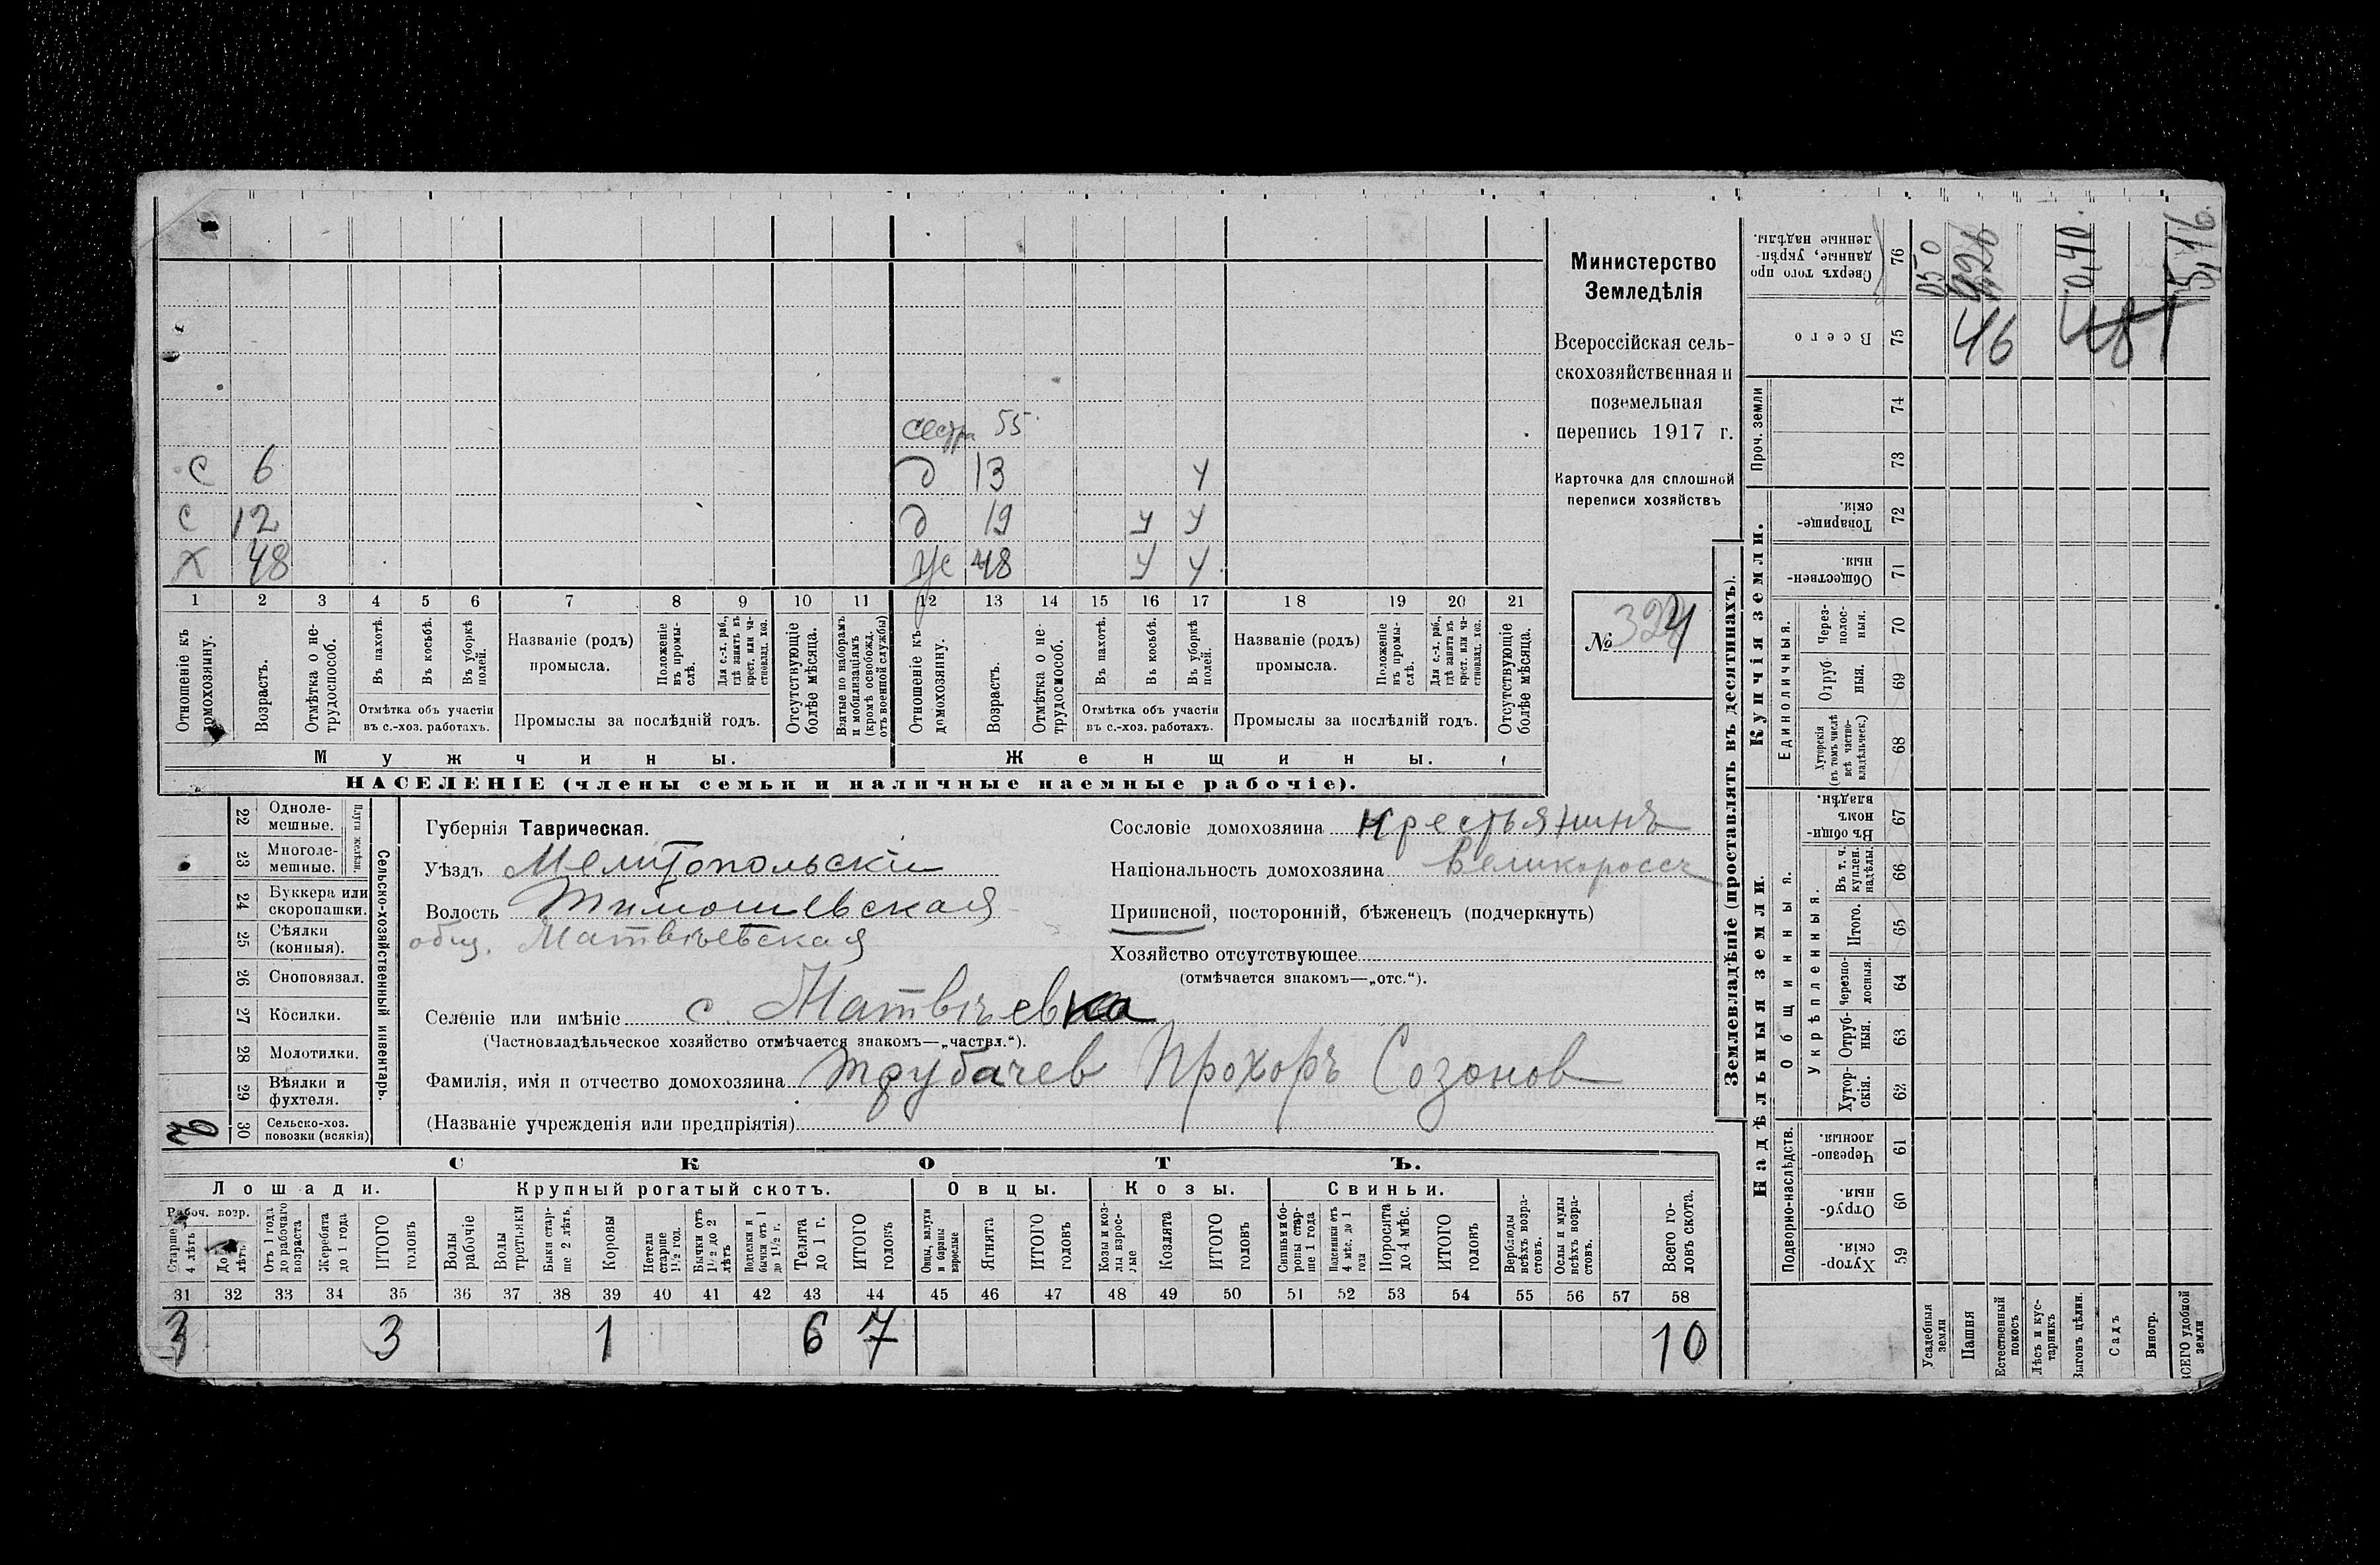 сестра 55
С 6 д 13 у
С 12 д 19 у у
Х 48 Же 48 у у
1 2 3 4 5 6 7 8 9 10 11 12 13 14 15 16 17 18 19 20 21
Отношеніе къ домохозяину.
Возрастъ.
Отмѣтка о нетрудоспособ.
Въ пахотѣ.
Въ косьбѣ.
Въ уборкѣ полей.
Отмѣтка объ участіи
въ с.-хоз. работахъ.
Названіе (родъ)
промысла.
Положеніе въ промыслѣ.
Для с.-х. раб., гдѣ занятъ въ крест. или частновлад. хоз.
Промыслы за послѣдній годъ.
Отсутствующіе болѣе мѣсяца.
Взятые по наборамъ и мобилизаціямъ (кромѣ освобожд. отъ военной службы)
Отношеніе къ домохозяину.
Возрастъ.
Отмѣтка о нетрудоспособ.
Въ пахотѣ.
Въ косьбѣ.
Въ уборкѣ полей.
Отмѣтка объ участіи
въ с.-хоз. работахъ.
Названіе (родъ)
промысла.
Положеніе въ промыслѣ.
Для с.-х. раб., гдѣ занята въ крест. или частновлад. хоз.
Промыслы за послѣдній годъ.
Отсутствующіе болѣе мѣсяца.
Мужчины. Женщины.
НАСЕЛЕНІЕ (члены семьи и наличные наемные рабочіе).
Министерство
Земледѣлія
Всероссійская сель-
скохозяйственная и
поземельная
перепись 1917 г.
Карточка для сплошной
переписи хозяйствъ
№ 324
22 Одноле-
мешные.
23 Многоле-
мешные.
Плуги желѣзн.
24 Буккера или
скоропашки.
25 Сѣялки
(конныя).
26 Сноповязал.
27 Косилки.
28 Молотилки.
29 Вѣялки и
фухтеля.
30 Сельско-хоз.
повозки (всякія)
Сельско-хозяйственный инвентарь.
Губернія Таврическая.
Уѣздъ Мелитопольскій
Волость Тимошевская
общ. Матвѣевская
Селеніе или имѣніе с. Матвѣевка
(Частновладѣльческое хозяйство отмѣчается знакомъ—„частвл.“).
Фамилія, имя и отчество домохозяина Трубачев Прохоръ Созонов
(Названіе учрежденія или предпріятія)
Сословіе домохозяина крестьянинъ
Національность домохозяина Великороссъ
Приписной, посторонній, бѣженецъ (подчеркнуть)
Хозяйство отсутствующее
(отмѣчается знакомъ—„отс.“).
СКОТЪ.
Лошади. Крупный рогатый скотъ. Овцы. Козы. Свиньи.
Рабоч. возр.
Старше 4 лѣтъ
До 4 лѣтъ
Отъ 1 года до рабочаго возраста
Жеребята до 1 года
ИТОГО головъ
Волы рабочіе
Волы третьяки
Быки старше 2 лѣтъ
Коровы
Нетели старше 1½ год.
Бычки отъ 1½ до 2 лѣтъ
Подтелки и бычки отъ 1 до 1½ г.
Телята до 1 г.
ИТОГО головъ
Овцы, валухи и бараны взрослые
Ягнята
ИТОГО головъ
Козы и козлы взрослые
Козлята
ИТОГО головъ
Свиньи и боровы старше 1 года
Подсвинки отъ 4 мѣс. до 1 года
Поросята до 4 мѣс.
ИТОГО головъ
Верблюды всѣхъ возрастовъ.
Ослы и мулы всѣхъ возрастовъ.
Всего головъ скота.
31 32 33 34 35 36 37 38 39 40 41 42 43 44 45 46 47 48 49 50 51 52 53 54 55 56 57 58
3 3 1 6 7 10
Землевладѣніе (проставлять въ десятинахъ).
Надѣльныя земли.
Купчія земли.
Подворно-наслѣдств.
Общинныя.
Укрѣпленныя.
Единоличныя.
Проч. земли
Хуторскія. 59
Отрубныя. 60
Черезполосныя. 61
Хуторскія. 62
Отрубныя. 63
Черезполосныя. 64
Итого. 65
Въ т. ч. куплен. надѣлы. 66
Въ общинномъ владѣн. 67
Хуторскія (въ томъ числѣ всѣ частновладѣльческ.) 68
Отрубныя. 69
Черезполосныя. 70
Общественныя. 71
Товарищескія. 72
73
74
Всего 75
Сверхъ того проданные, укрѣпленные надѣлы. 76
Усадебныя земли
Пашня
Естественный покосъ
Лѣсъ и кустарникъ
Выгонъ цѣлин.
Садъ
Виногр.
ВСЕГО удобной земли
46
0,40